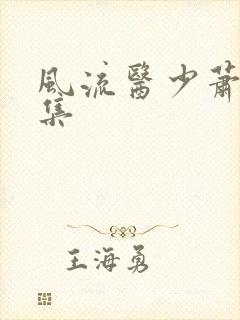 風流醫少蕭
集
王海勇